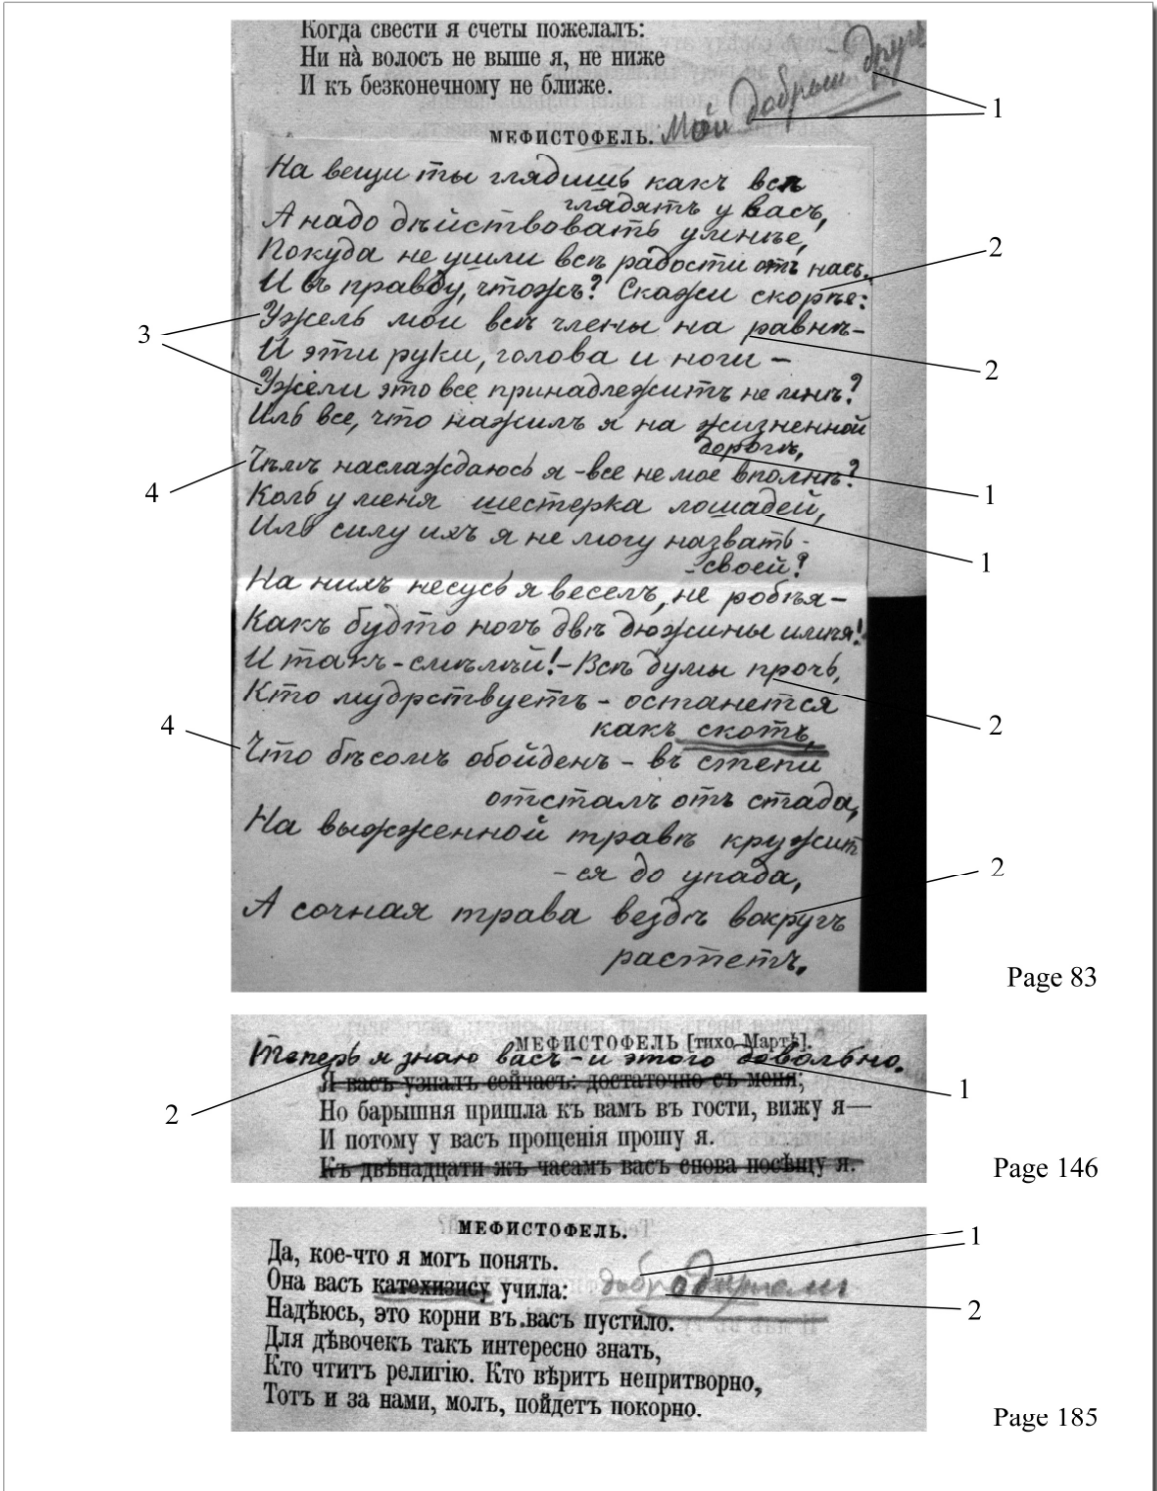 Когда свести я счеты пожелалъ:
Ни на̀ волосъ не выше я, не ниже
И къ безконечному не ближе.
Мой добрый другъ
1
МЕФИСТОФЕЛЬ.
На вещи ты глядишь какъ всѣ
глядятъ у васъ,
А надо дѣйствовать умнѣе,
2
Покуда не ушли всѣ радости отъ насъ.
И въ правду, чтожъ? Скажи скорѣе:
3
Ужель мои всѣ члены на равнѣ-
2
И эти руки, голова и ноги -
Ужели это все принадлежитъ не мнѣ?
Иль все, что нажилъ я на жизненной
дорогѣ,
4
Чѣмъ наслаждаюсь я - все не мое вполнѣ?
1
Коль у меня шестерка лошадей,
Иль силу ихъ я не могу назвать -
1
- своей?
На нихъ несусь я веселъ, не робѣя -
Какъ будто ногъ двѣ дюжины имѣя!
И такъ - смѣлѣй! - Всѣ думы прочь,
Кто мудрствуетъ - останется
2
какъ скотъ,
4
Что бѣсомъ обойденъ - въ степи
отсталъ отъ стада,
На выжженной травѣ кружит
- ся до упада,
2
А сочная трава вездѣ вокругъ
растетъ.
Page 83
МЕФИСТОФЕЛЬ [тихо Мартѣ].
Теперь я знаю васъ - и этого довольно.
Я васъ узналъ сейчасъ: достаточно съ меня;
1
2
Но барышня пришла къ вамъ въ гости, вижу я—
И потому у васъ прощенія прошу я.
Къ двѣнадцати жъ часамъ васъ снова посѣщу я.
Page 146
МЕФИСТОФЕЛЬ.
1
1
Да, кое-что я могъ понять.
Она васъ катехизису учила: добродѣтели
2
Надѣюсь, это корни въ васъ пустило.
Для дѣвочекъ такъ интересно знать,
Кто чтитъ религію. Кто вѣритъ непритворно,
Тотъ и за нами, молъ, пойдетъ покорно.
Page 185